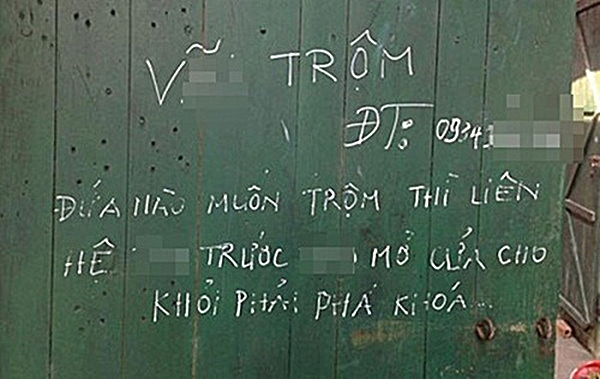 TRỘM
ĐT: 0934
ĐỨA NÀO MUÔN TRỘM THÌ LIÊN
HỆ TRƯỚC MỞ CỬA CHO
KHỎI PHẢI PHÁ KHOÁ...